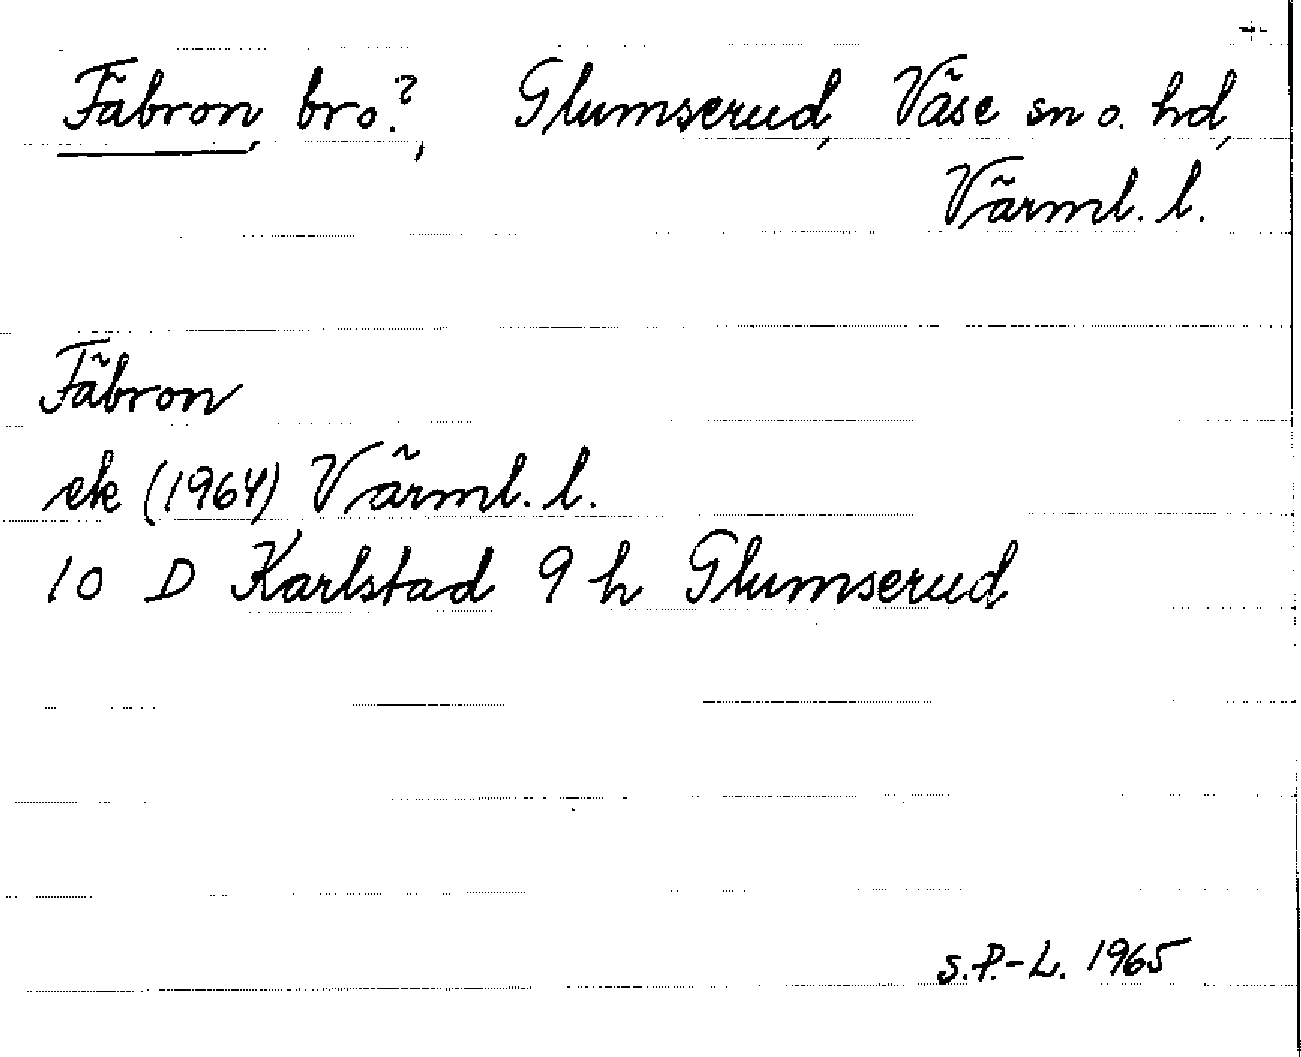 Fäbron, bro?, Glumserud, Väse sn o. hd,
Värml. l.
Fäbron
ek (1964) Värml. l.
10 D Karlstad 9 h Glumserud
S.P.-L. 1965